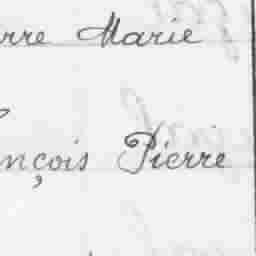 rre Marie
nçois Pierre